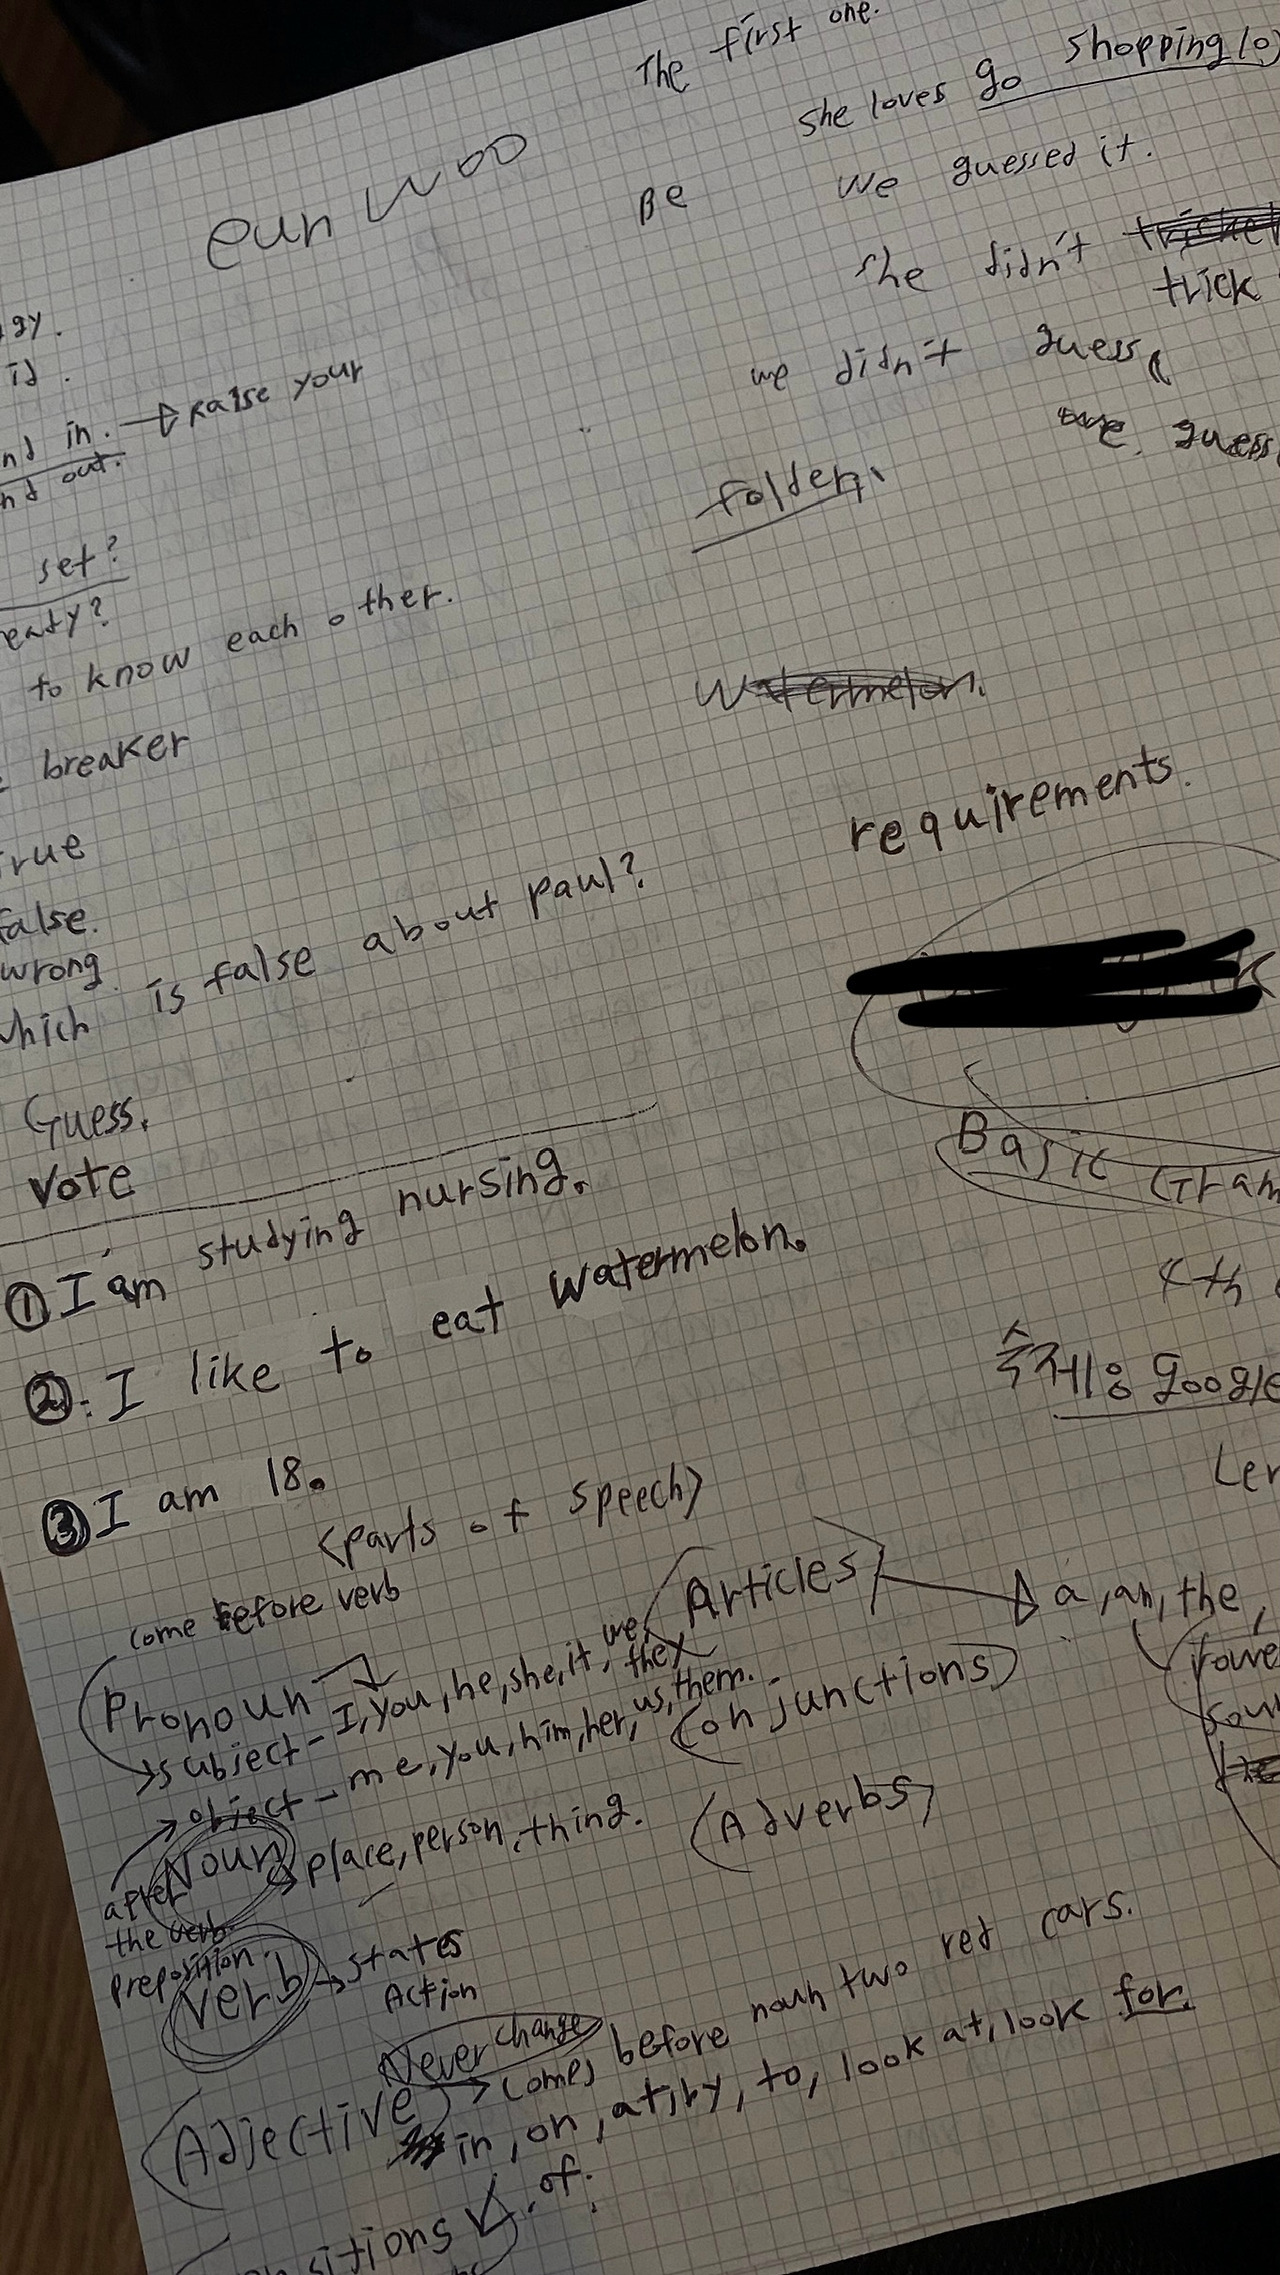 The first one.
she loves go shopping(o)
eun woo
Be We guessed it.
she didn't
trick
we didn't guess
guess
folder.
is.
in. → Raise your
out.
set?
to know each other.
breaker
requirements.
false.
wrong
is false about paul?
Guess.
Vote
Basic
① I am studying nursing.
② I like to eat watermelon.
4th
숙제용 google
③ I am 18.
<parts of speech>
come before verb
(Articles) → a, an, the,
Pronoun
→ subject - I, you, he, she, it, we, they
→ object - me, you, him, her, us, them.
(Conjunctions)
Noun → place, person, thing.
(Adverbs)
after
the verb.
preposition.
Verb → states
Action
Never change
(Adjective) → comes before noun two red cars.
in, on, at, by, to, look at, look for.
of.